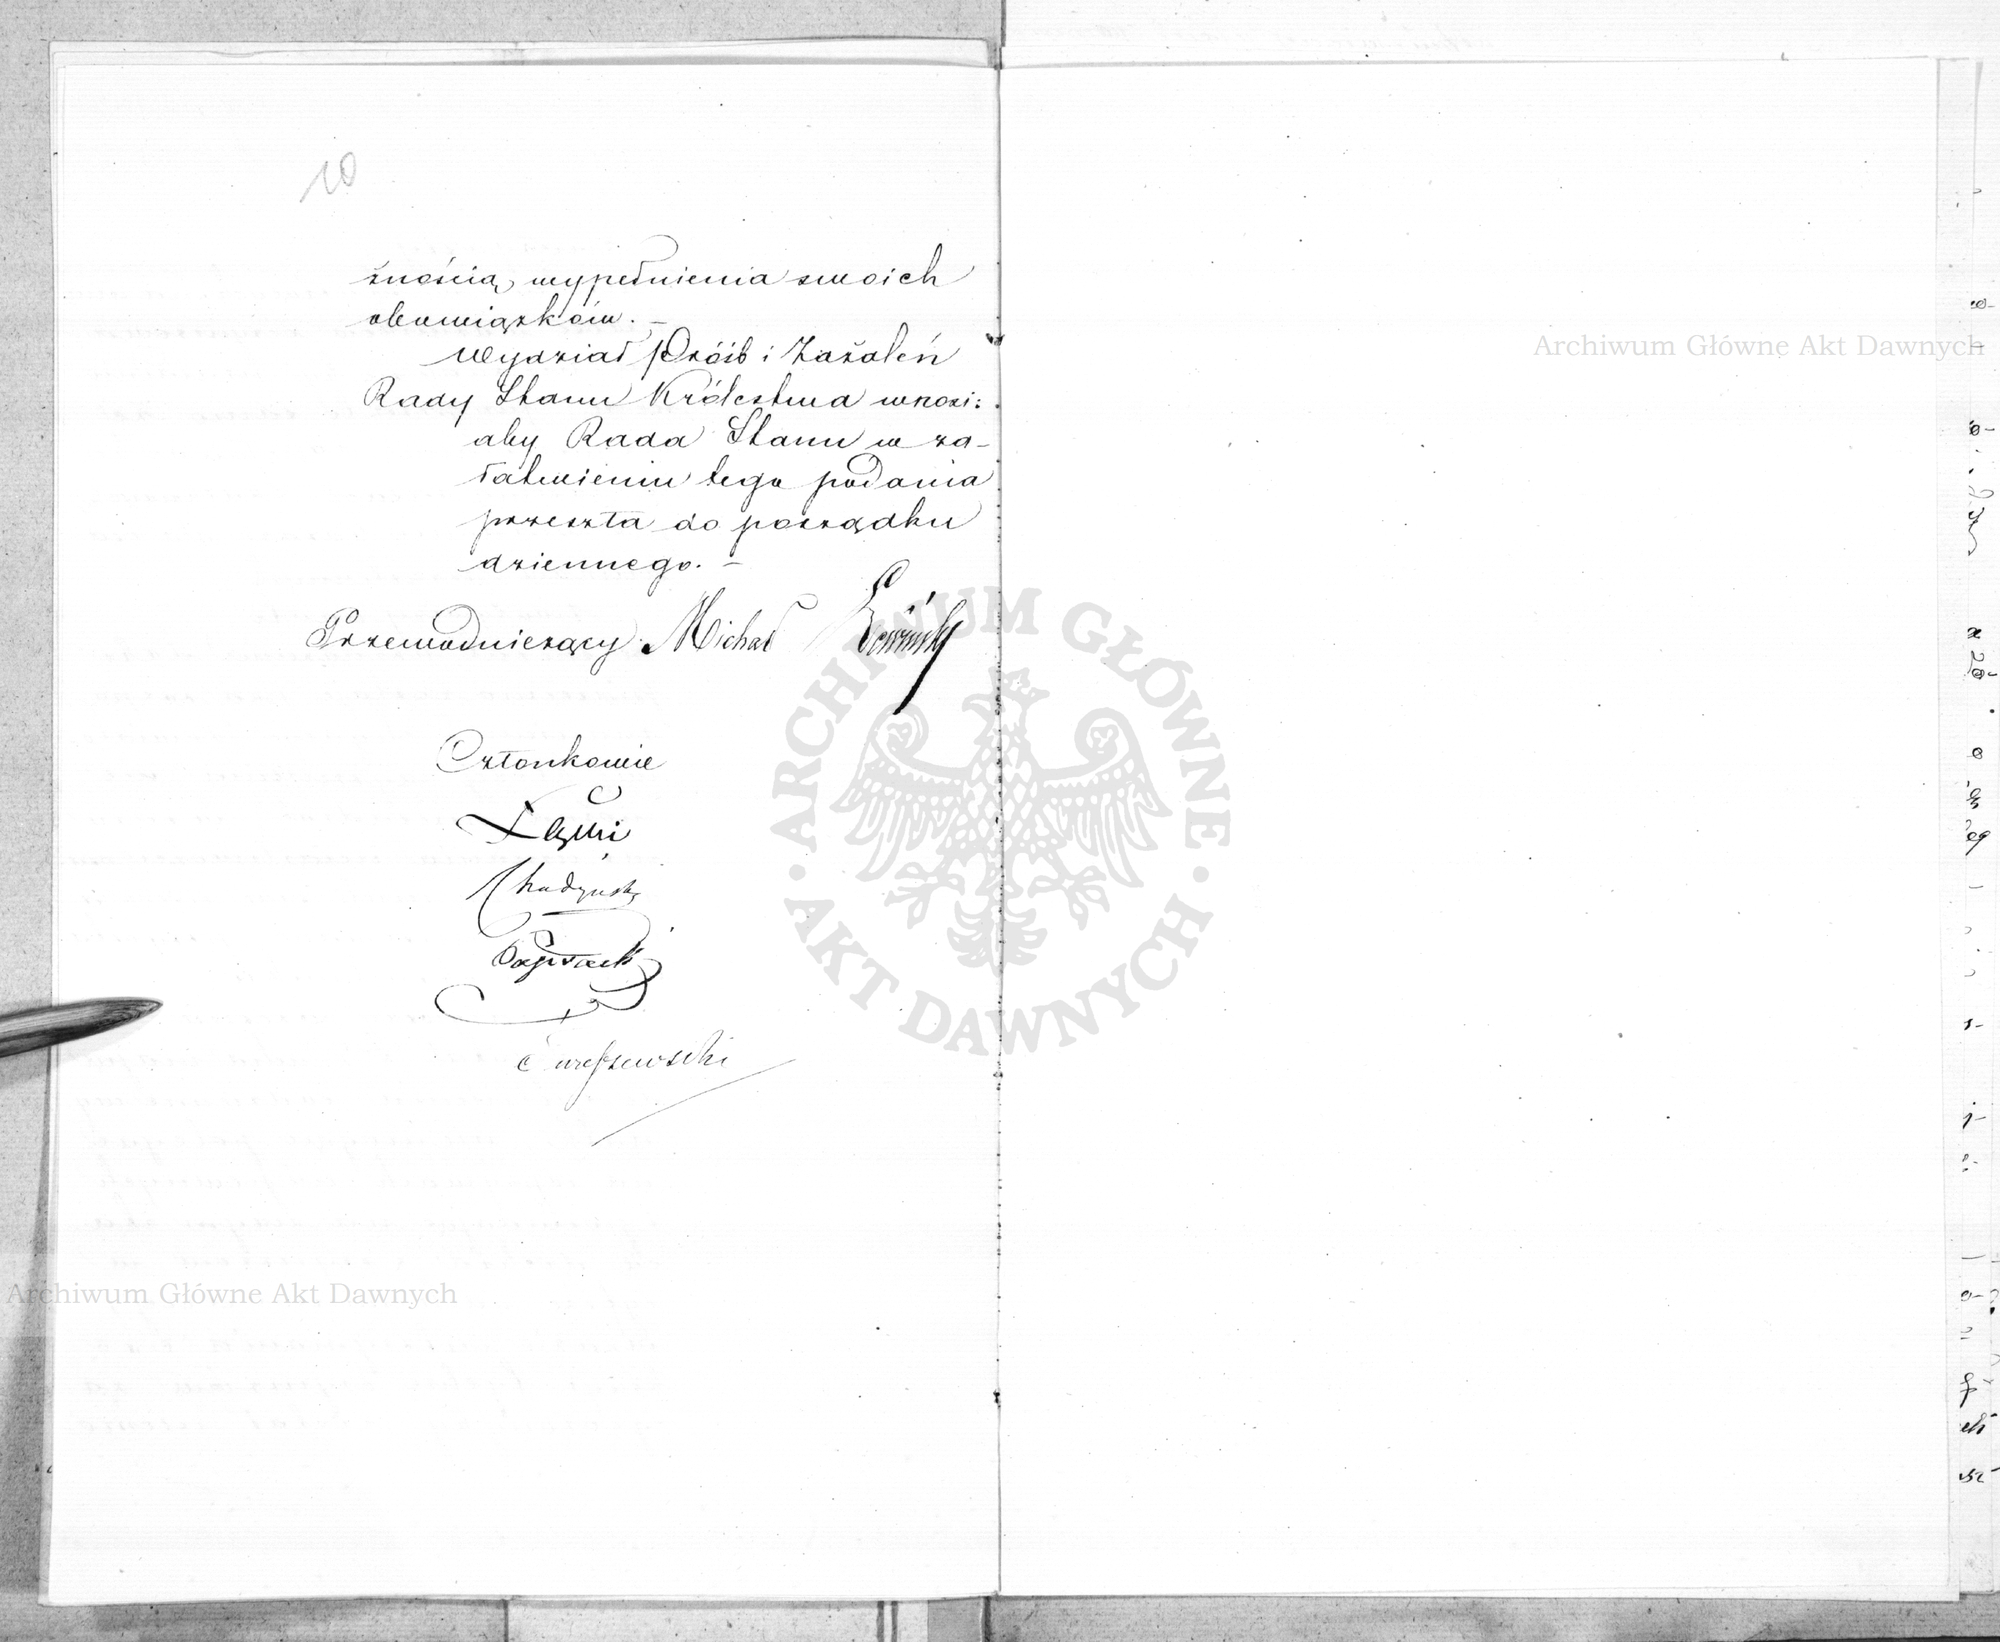 10
żnością, wypełnienia swoich
obowiązków. —
Wydział Próśb i Zażaleń
Rady Stanu Królestwa wnosi:
aby Rada Stanu w za-
łatwieniu tego podania
przeszła do porządku
dziennego. —
Przewodniczący Michał
Członkowie
Łęski
Chądzyński
Archiwum Główne Akt Dawnych
ARCHIWUM GŁÓWNE · AKT DAWNYCH ·
Archiwum Główne Akt Dawnych